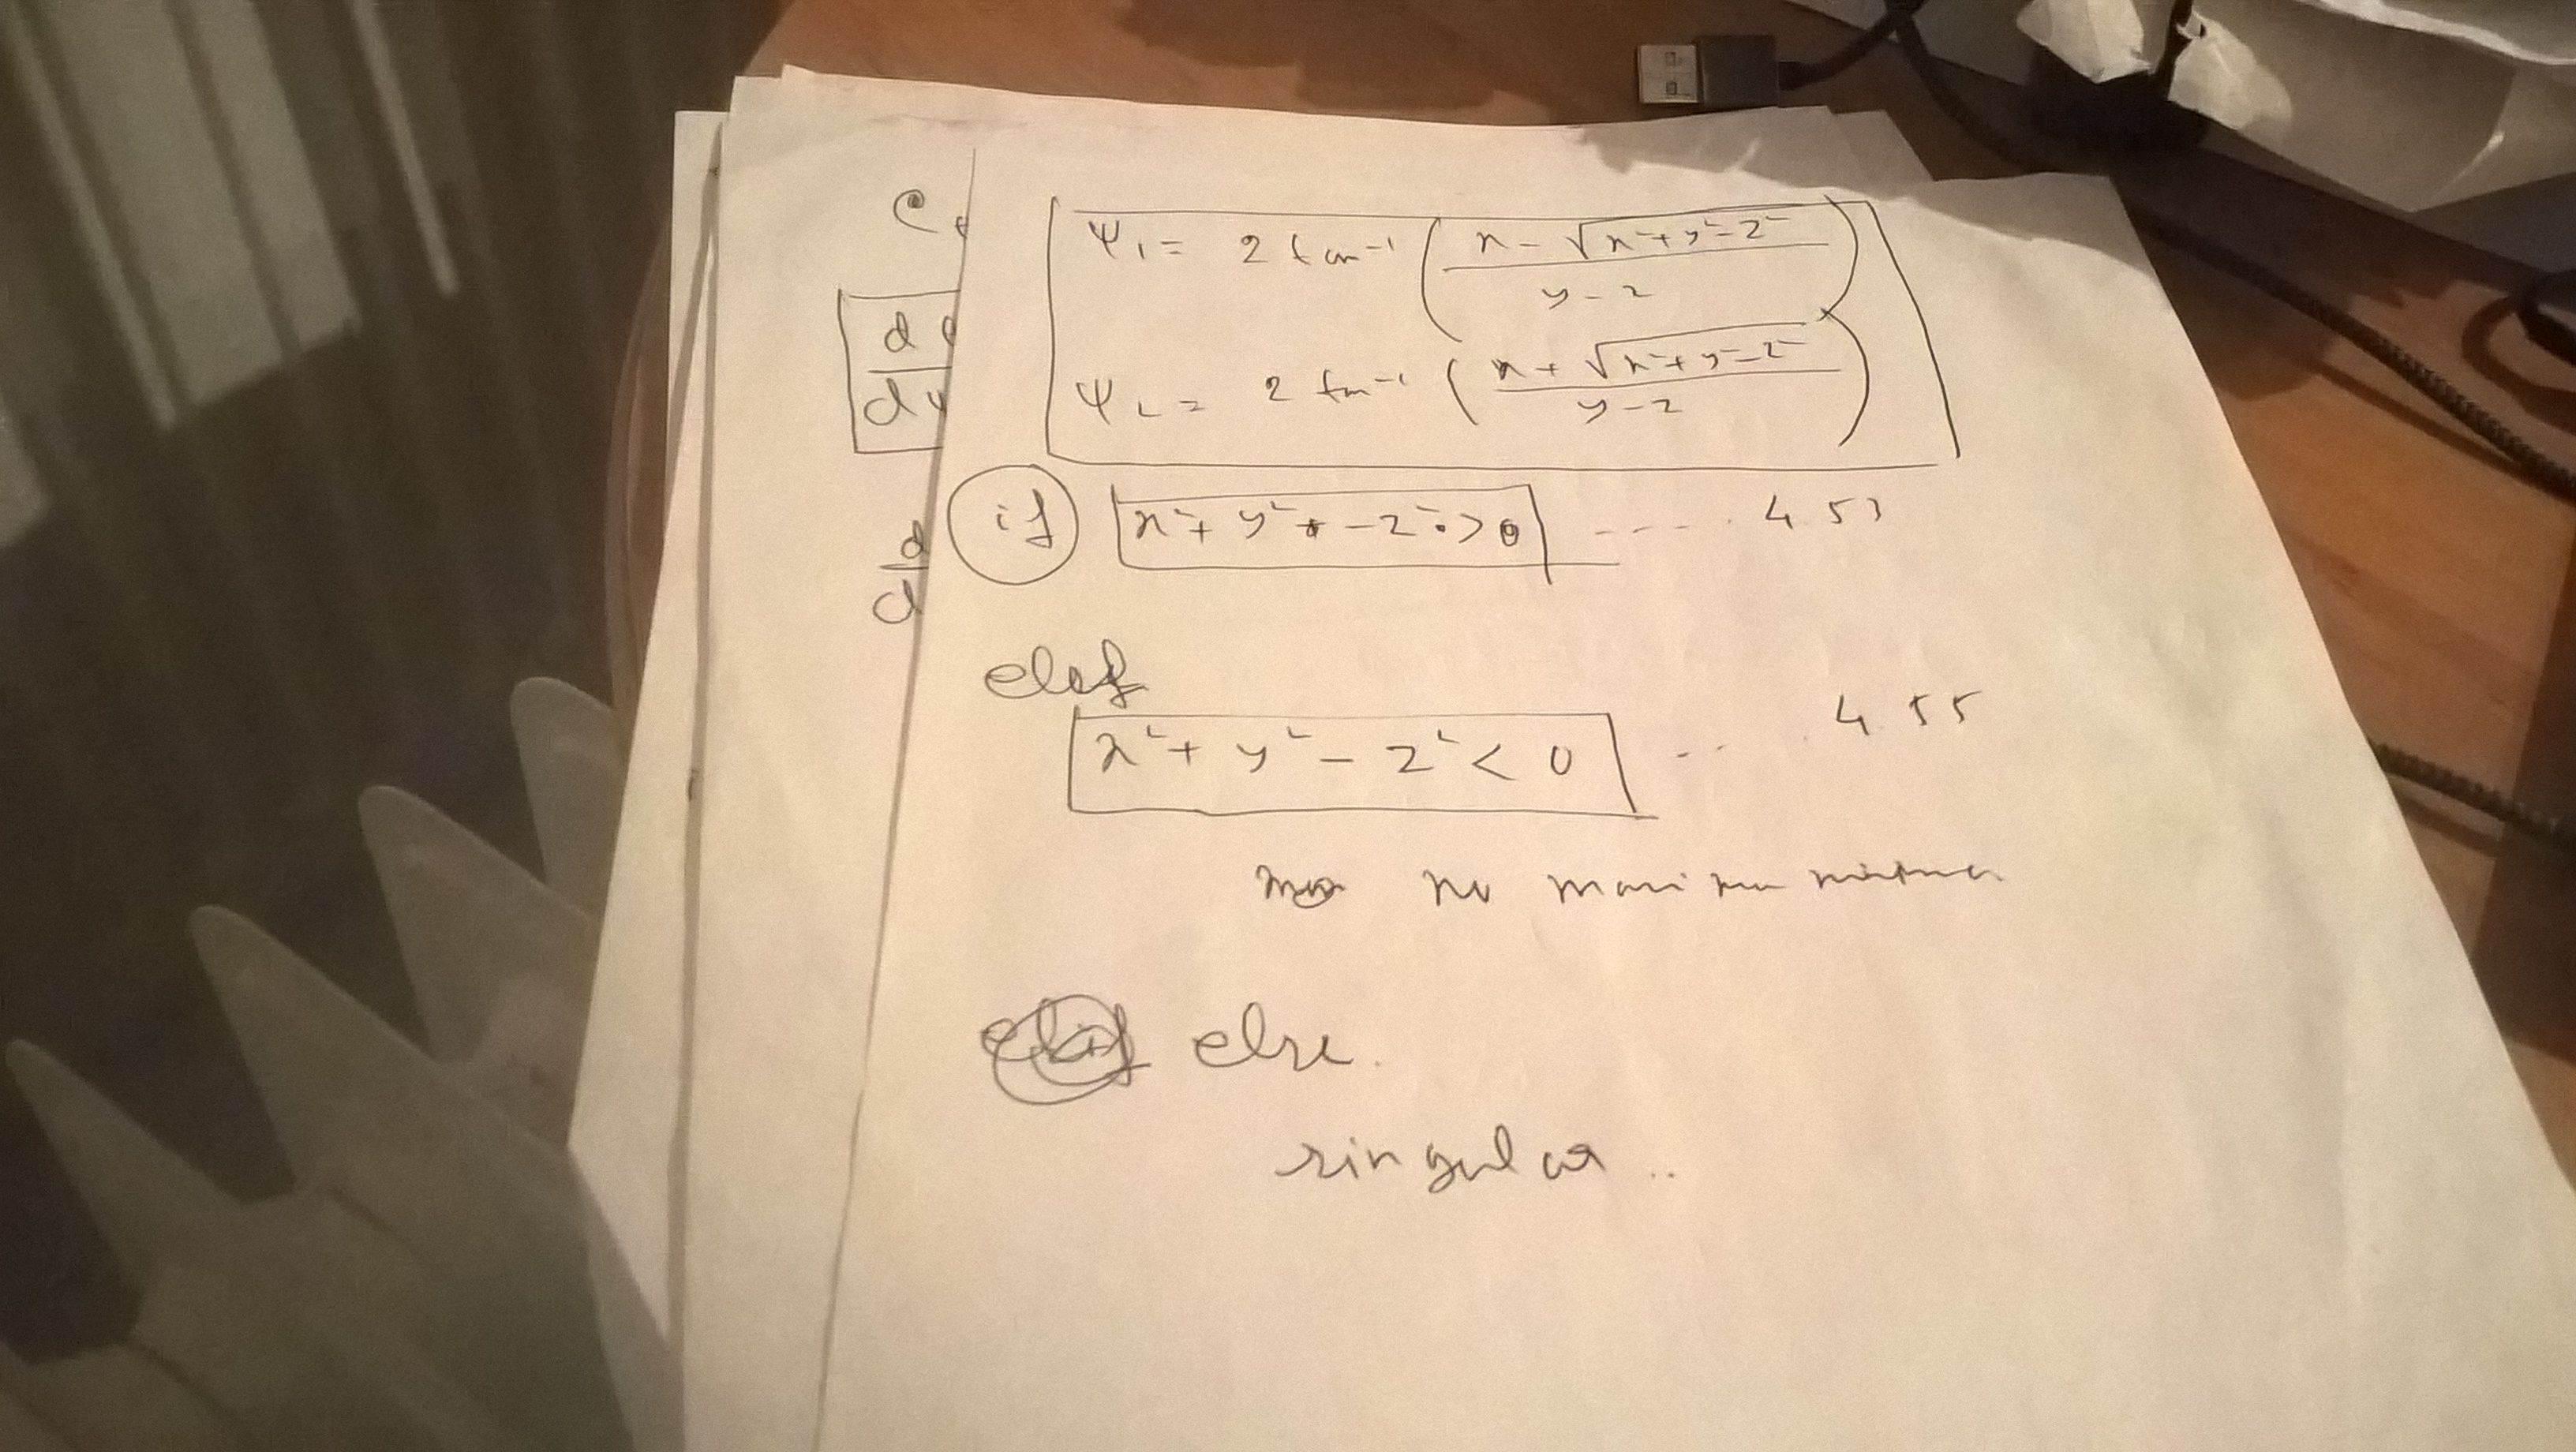 e
d e
d ψ
d
d
ψ₁ = 2 tan⁻¹ ( (x - √(x² + y² - z²)) / (y - z) )
ψ₂ = 2 tan⁻¹ ( (x + √(x² + y² - z²)) / (y - z) )
if x² + y² - z² > 0 ---- 4.53
elsf
x² + y² - z² < 0 ... 4.55
no maxima minima
else.
singular ..